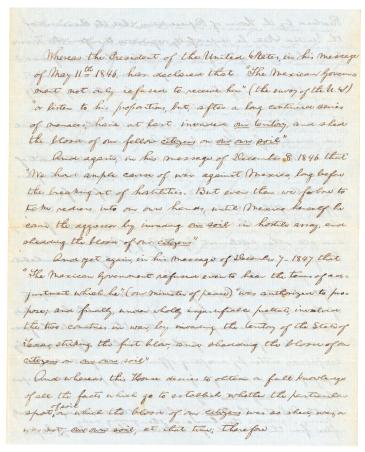 Whereas the President of the United States, in his message
of May 11th 1846, has declared that "The Mexican Govern-
ment not only refused to receive him" (the envoy of the U.S.)
"or listen to his propositions, but, after a long continued series
of menaces, have at last invaded our territory, and shed
the blood of our fellow citizens on our own soil"
And again, in his message of December 8, 1846 that
"We had ample cause of war against Mexico, long before
the breaking out of hostilities. But even then we forbore to
take redress into our own hands, until Mexico herself be-
came the aggressor by invading our soil in hostile array, and
shedding the blood of our citizens"
And yet again, in his message of December 7- 1847 that
"The Mexican Government refused even to hear the terms of ad-
justment which he" (our minister of peace) "was authorized to pro-
pose; and finally, under wholly unjustifiable pretexts, involved
the two countries in war, by invading the teritory of the State of
Texas, striking the first blow, and shedding the blood of our
citizens on our own soil"
And whereas this House desires to obtain a full knowledge
of all the facts which go to establish whether the particular
spot of soil on which the blood of our citizens was so shed, was, or
was not, our own soil, at that time; therefore